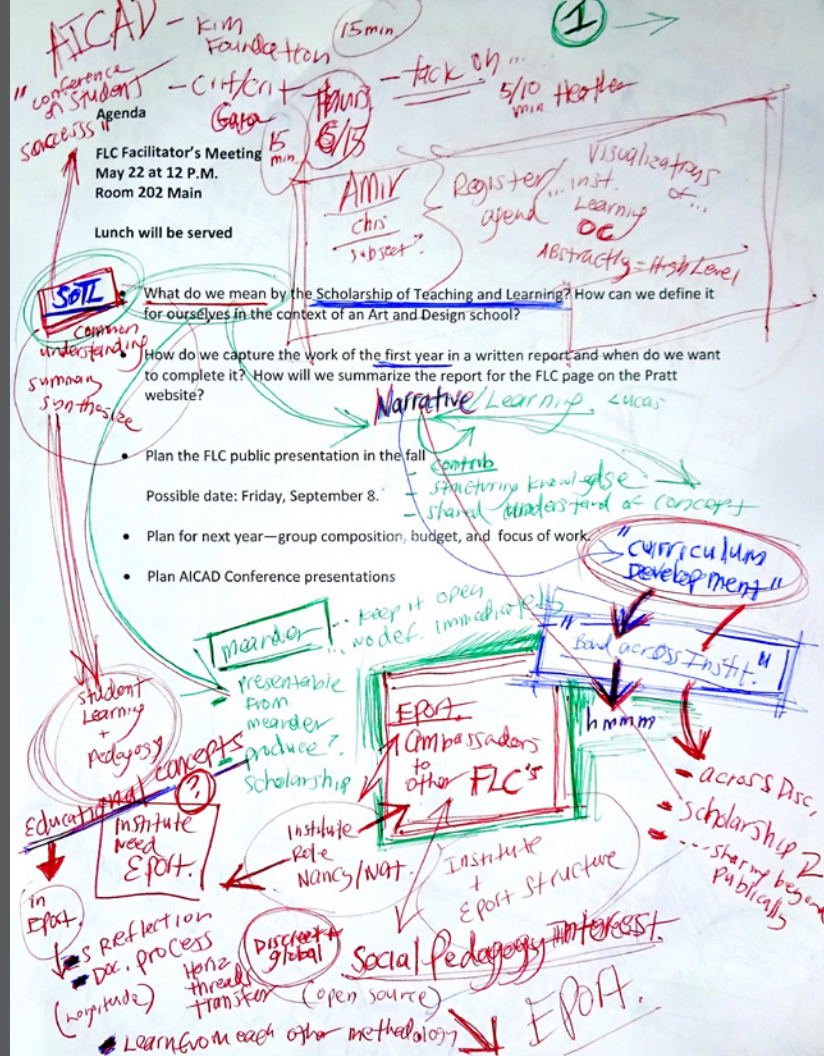 AICAD - Kim Foundation
15 min
1
"conference on student success"
- Crit/crit
Hours
6/15
- tack on ...
5/10 min Heather
15 min.
Agenda
FLC Facilitator's Meeting
May 22 at 12 P.M.
Room 202 Main
Lunch will be served
Amir
Chris
subject?
Register/
agend
Visualizations
... inst. of...
Learning
OC
Abstractly = High Level
SOTL
common
understanding
summary
synthesize
• What do we mean by the Scholarship of Teaching and Learning? How can we define it
for ourselves in the context of an Art and Design school?
• How do we capture the work of the first year in a written report and when do we want
to complete it? How will we summarize the report for the FLC page on the Pratt
website?
Narrative/Learning. Lucas
• Plan the FLC public presentation in the fall
Possible date: Friday, September 8.
contrib
- structuring knowledge
- shared understand of concept
• Plan for next year—group composition, budget, and focus of work.
• Plan AICAD Conference presentations
"curriculum
Development"
meander
... keep it open
... no def. immediately
"Bond across Instit."
hmmm
- presentable
from
meander
- produce?
scholarship
Student
Learning
+
pedagogy
Educational concepts
EPort.
Ambassadors
to
other FLC's
- across Disc.
- scholarship
- ... sharing beyond
publically
?
Institute
Need
EPort.
Institute
Role
Nancy/Nat.
Institute
+
EPort Structure
in
EPort.
Reflection
Doc. process
(longitude)
Horiz
threads
transfer
Discreet +
global
Social Pedagogy Interest.
(open source)
Learn from each other methodology
EPort.